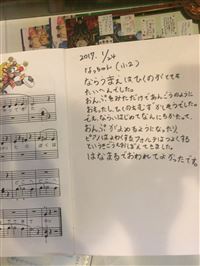 2017. 1/24
なっちゃん(小2)
ならうまえはひくのがとても
たいへんでした。
おんぷをみただけであんごうのように
おもったし、ひくのもむずかしそうでした。
でも、ならいはじめてなんにちかたって、
おんぷがよめるようになったり
ピアノはよわくするフォルテはつよくする
というきごうもおぼえてきました。
はなまるでおわれてよかったです。